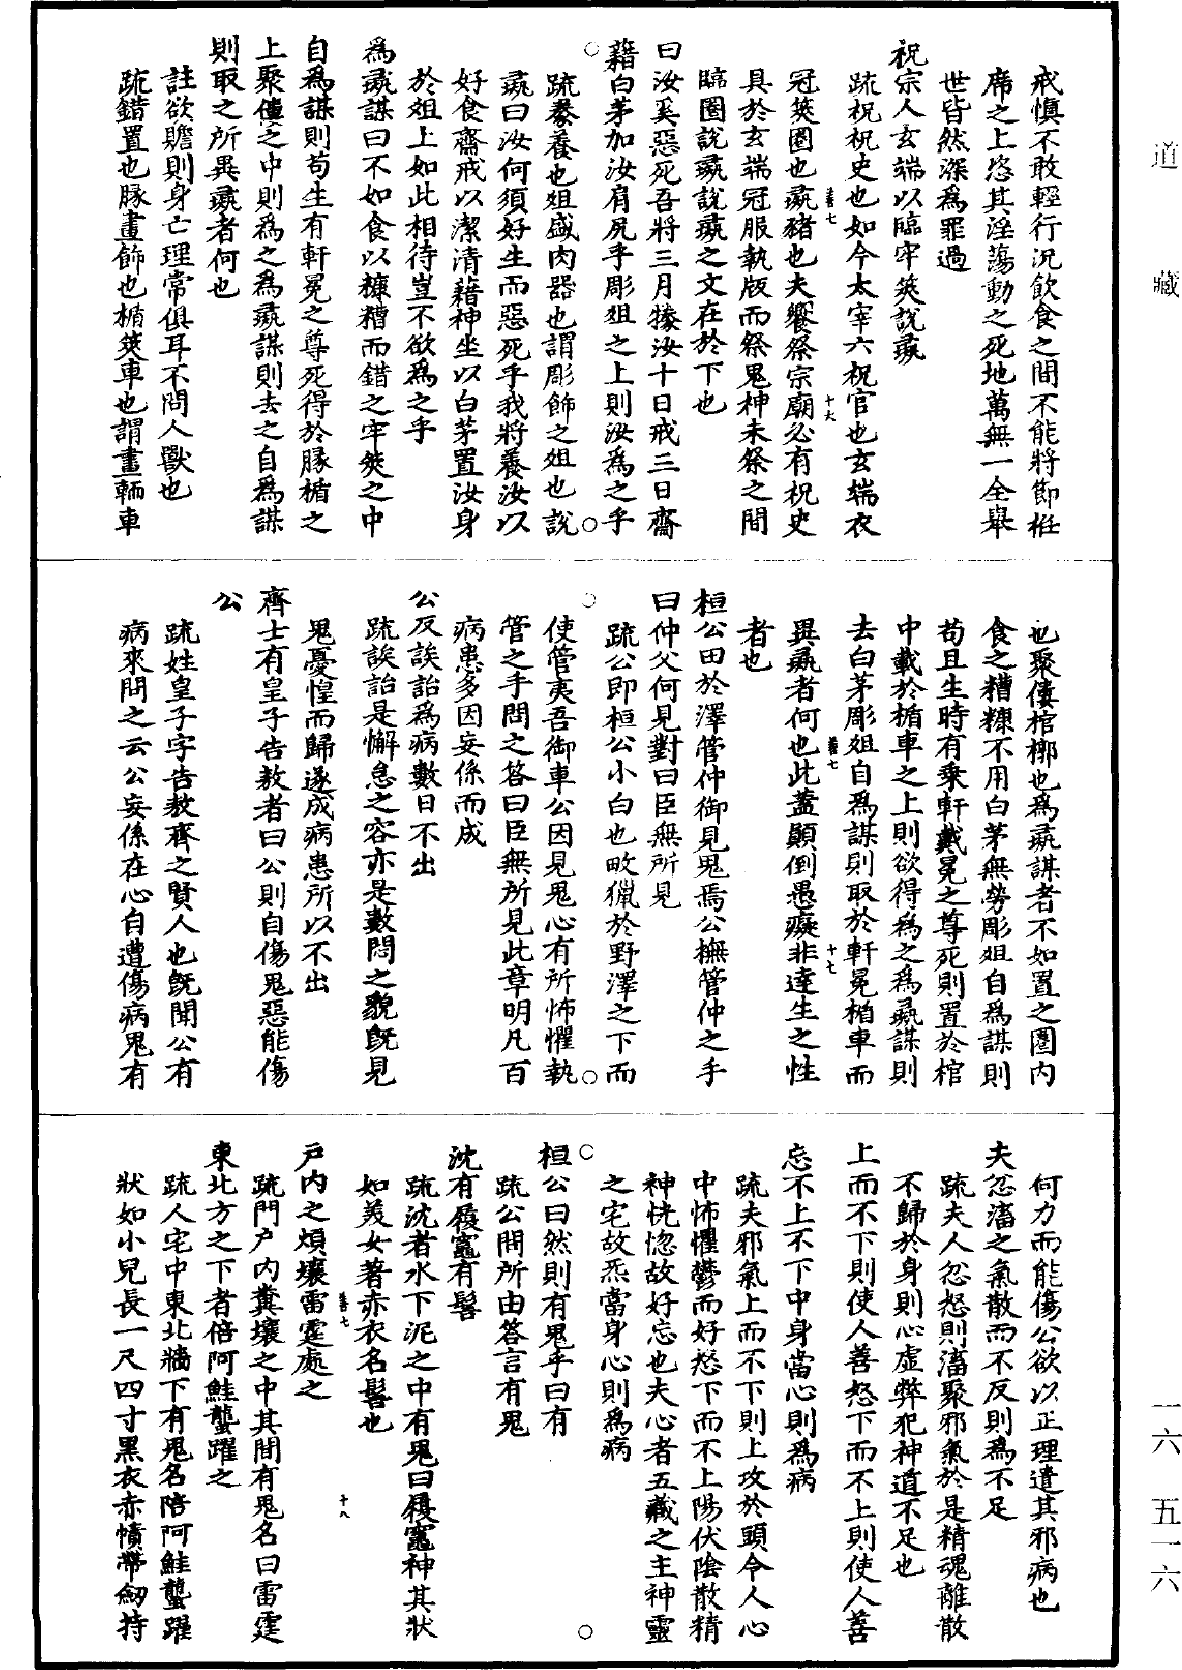 道藏
戒慎不敢輕行況飲食之間不能將節衽
席之上恣其淫蕩動之死地萬無一全舉
世皆然深為罪過
祝宗人玄端以臨牢筴說彘
疏祝祝史也如今太宰六祝官也玄端衣
善七 十六
冠筴圈也彘豬也夫饗祭宗廟必有祝史
具於玄端冠服執版而祭鬼神未祭之間
臨圈說彘說彘之文在於下也
曰汝奚惡死吾將三月㹖汝十日戒三日齋
藉白茅加汝肩尻乎彫俎之上則汝為之乎
疏豢養也俎盛肉器也謂彫飾之俎也說
彘曰汝何須好生而惡死乎我將養汝以
好食齋戒以潔清藉神坐以白茅置汝身
於俎上如此相待豈不欲為之乎
為彘謀曰不如食以糠糟而錯之牢筴之中
自為謀則苟生有軒冕之尊死得於腞楯之
上聚僂之中則為之為彘謀則去之自為謀
則取之所異彘者何也
註欲贍則身亡理常俱耳不問人獸也
疏錯置也腞畫飾也楯筴車也謂畫輀車
也聚僂棺槨也為彘謀者不如置之圈內
食之糟糠不用白茅無勞彫俎自為謀則
苟且生時有乘軒戴冕之尊死則置於棺
中載於楯車之上則欲得為之為彘謀則
去白茅彫俎自為謀則取於軒冕楯車而
善七 十七
異彘者何也此蓋顛倒愚癡非達生之性
者也
桓公田於澤管仲御見鬼焉公撫管仲之手
曰仲父何見對曰臣無所見
疏公即桓公小白也畋獵於野澤之下而
使管夷吾御車公因見鬼心有所怖懼執
管之手問之答曰臣無所見此章明凡百
病患多因妄係而成
公反誒詒為病數日不出
疏誒詒是懈怠之容亦是數悶之貌既見
鬼憂惶而歸遂成病患所以不出
齊士有皇子告敖者曰公則自傷鬼惡能傷
公
疏姓皇子字告敖齊之賢人也既聞公有
病來問之云公妄係在心自遭傷病鬼有
何力而能傷公欲以正理遣其邪病也
夫忿滀之氣散而不反則為不足
疏夫人忿怒則滀聚邪氣於是精魂離散
不歸於身則心虛弊犯神道不足也
上而不下則使人善怒下而不上則使人善
忘不上不下中身當心則為病
疏夫邪氣上而不下則上攻於頭令人心
中怖懼鬱而好怒下而不上陽伏陰散精
神恍惚故好忘也夫心者五藏之主神靈
之宅故炁當身心則為病
桓公曰然則有鬼乎曰有
疏公問所由答言有鬼
沈有履竈有髻
疏沈者水下泥之中有鬼曰履竈神其狀
如美女著赤衣名髻也
善七 十八
戶內之煩壤雷霆處之
疏門戶內糞壤之中其間有鬼名曰雷霆
東北方之下者倍阿鮭蠪躍之
疏人宅中東北牆下有鬼名陪阿鮭蠪躍
狀如小兒長一尺四寸黑衣赤幘帶劍持
一六 五一六